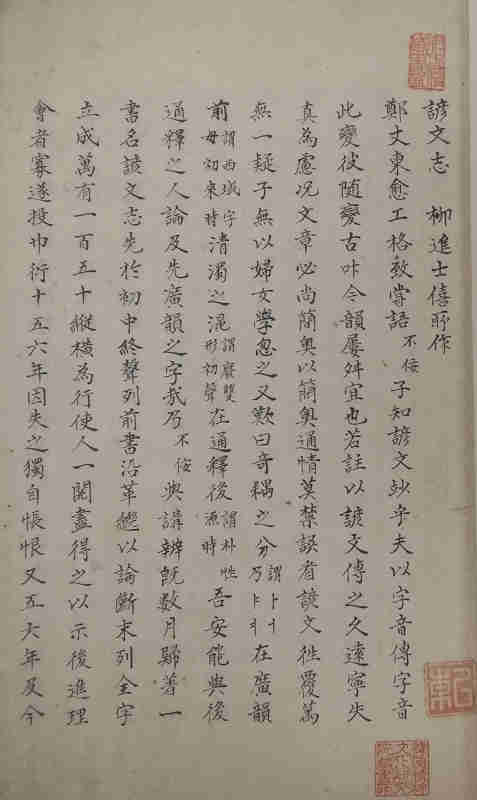 諺文志 柳進士僖所作
鄭丈東愈工格致嘗語不侫子知諺文妙乎夫以字音傳字音
此變彼隨變古叶今韻屢舛宜也若註以諺文傳之久遠寧失
真為慮况文章必尚簡奧以簡奧通情莫禁誤看諺文徃覆萬
無一疑子無以婦女學忽之又歎曰奇耦之分謂ㅏㅓ乃ㅑㅕ在廣韻
前謂西域字母初来時清濁之混謂廢雙形初聲在通釋後謂朴性源時吾安能與後
通釋之人論及先廣韻之字㢤乃不侫與講辨旣数月歸著一
書名諺文志先於初中終聲列前書沿革継以論斷末列全字
立成萬有一百五十縱横為行使人一閱盡得之以示後進理
會者寡遂投巾衍十五六年因失之獨自悵恨又五六年及今